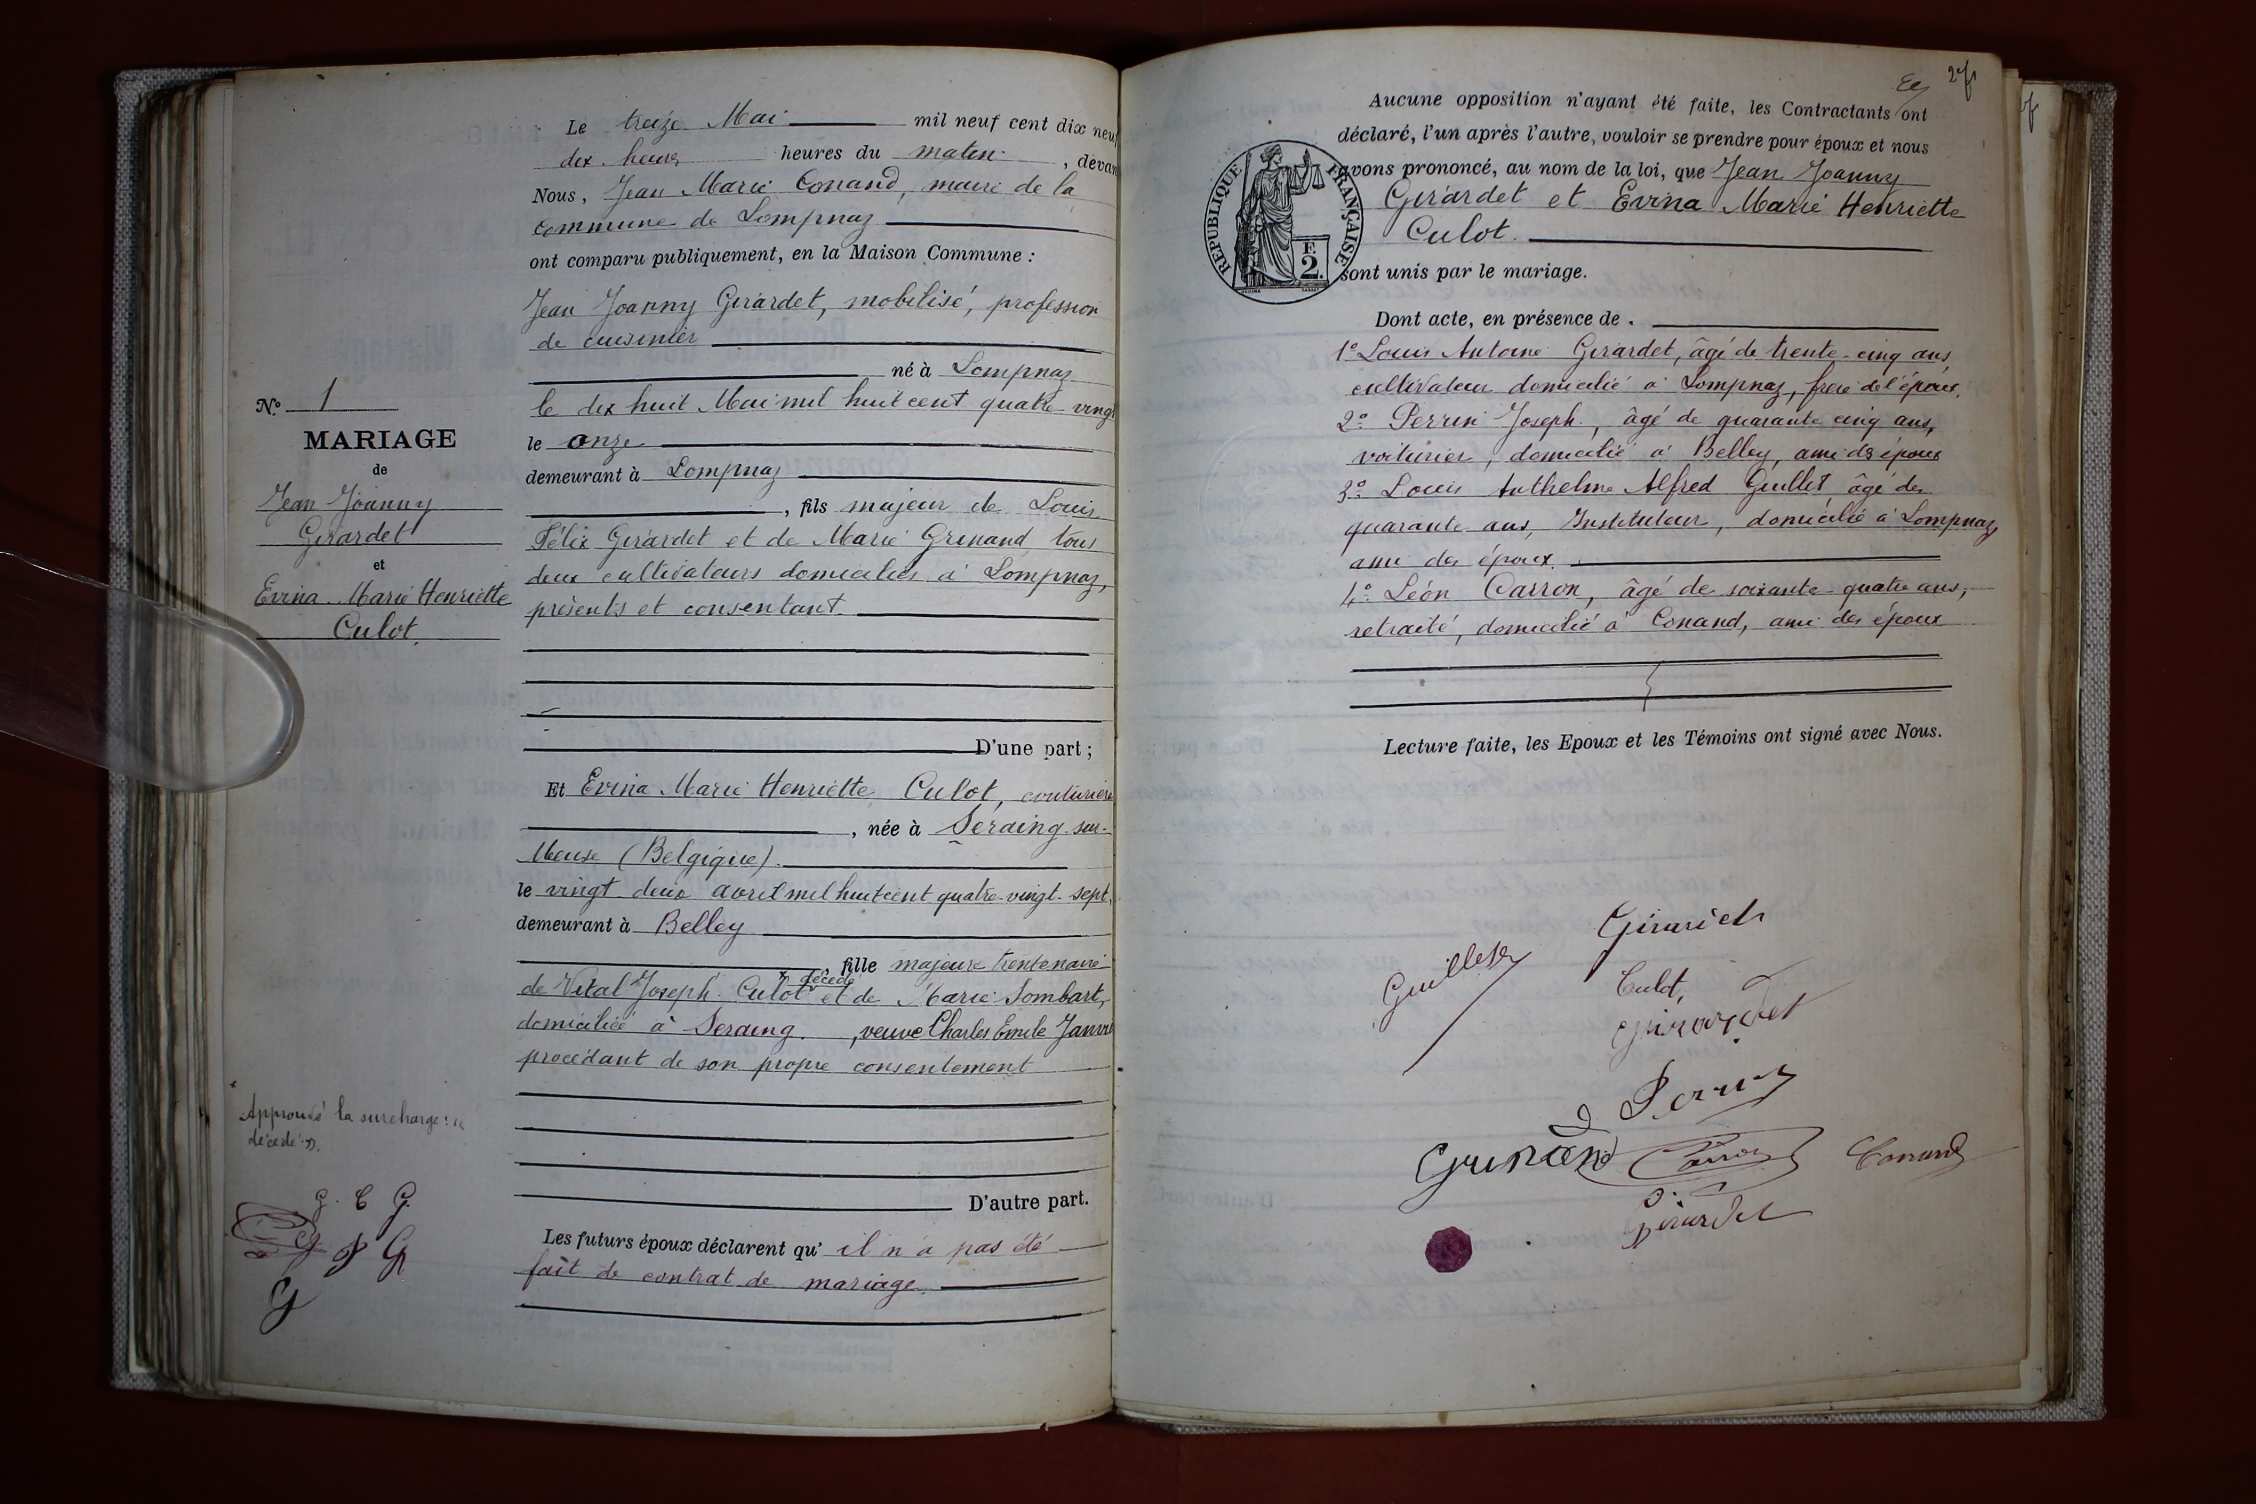 N.º 1
MARIAGE
de
Jean Joanny
Girardet
et
Evina Marie Henriette
Culot.
Approuvé la surcharge: «
décédé ».
G. C G.
P G
G
Le treize Mai mil neuf cent dix neuf
dix heures heures du matin , devan
Nous, Jean Marie Conand, maire de la
commune de Lompnaz
ont comparu publiquement, en la Maison Commune :
Jean Joanny Girardet, mobilisé, profession
de cuisinier
né à Lompnaz
le dix huit Mai mil huit cent quatre-vingt
le onze
demeurant à Lompnaz
, fils majeur de Louis
Félix Girardet et de Marie Grinand tous
deux cultivateurs domiciliés à Lompnaz,
présents et consentant.
D'une part ;
Et Evina Marie Henriette Culot, couturière
, née à Seraing-sur-
Meuse (Belgique).
le vingt deux avril mil huit cent quatre-vingt-sept,
demeurant à Belley
, fille majeure trentenaire
décédé
de Vital Joseph Culot et de Marie Lombart,
domiciliée à Seraing. , veuve Charles Emile Janvi
procédant de son propre consentement
D'autre part.
Les futurs époux déclarent qu' il n'a pas été
fait de contrat de mariage.
Aucune opposition n'ayant été faite, les Contractants ont
déclaré, l'un après l'autre, vouloir se prendre pour époux et nous
avons prononcé, au nom de la loi, que Jean Joanny
Girardet et Evina Marie Henriette
Culot.
sont unis par le mariage.
RÉPUBLIQUE FRANÇAISE
F
2.
Dont acte, en présence de .
1º Louis Antoine Girardet, âgé de trente-cinq ans,
cultivateur domicilié à Lompnaz, frère de l'époux.
2º Perrin Joseph, âgé de quarante cinq ans,
voiturier, domicilié à Belley, ami des époux
3º Louis Anthelme Alfred Guillet, âgé de
quarante ans, Instituteur, domicilié à Lompnaz,
ami des époux.
4º Léon Carron, âgé de soixante-quatre ans,
retraité, domicilié à Conand, ami des époux
Lecture faite, les Epoux et les Témoins ont signé avec Nous.
Girardet
Guillet
Culot,
Girardet
Perrin
Grinand
Carron
Conand
Girardet